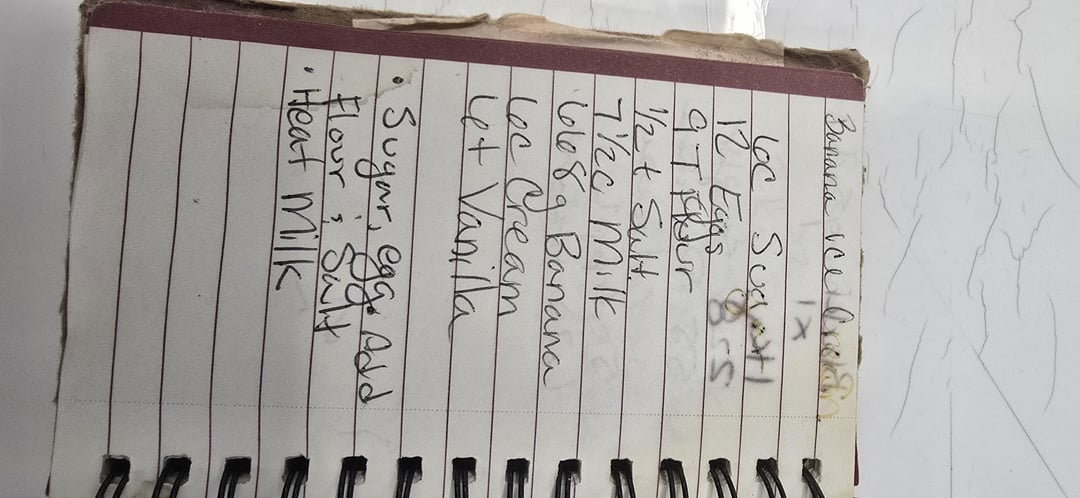 Banana ice Cream
1x
6c Sugar
12 Eggs
9 T Flour
1/2 t Salt
7 1/2 c Milk
668 g Banana
6c Cream
6t Vanilla
• Sugar, egg. Add
Flour & Salt
• Heat Milk